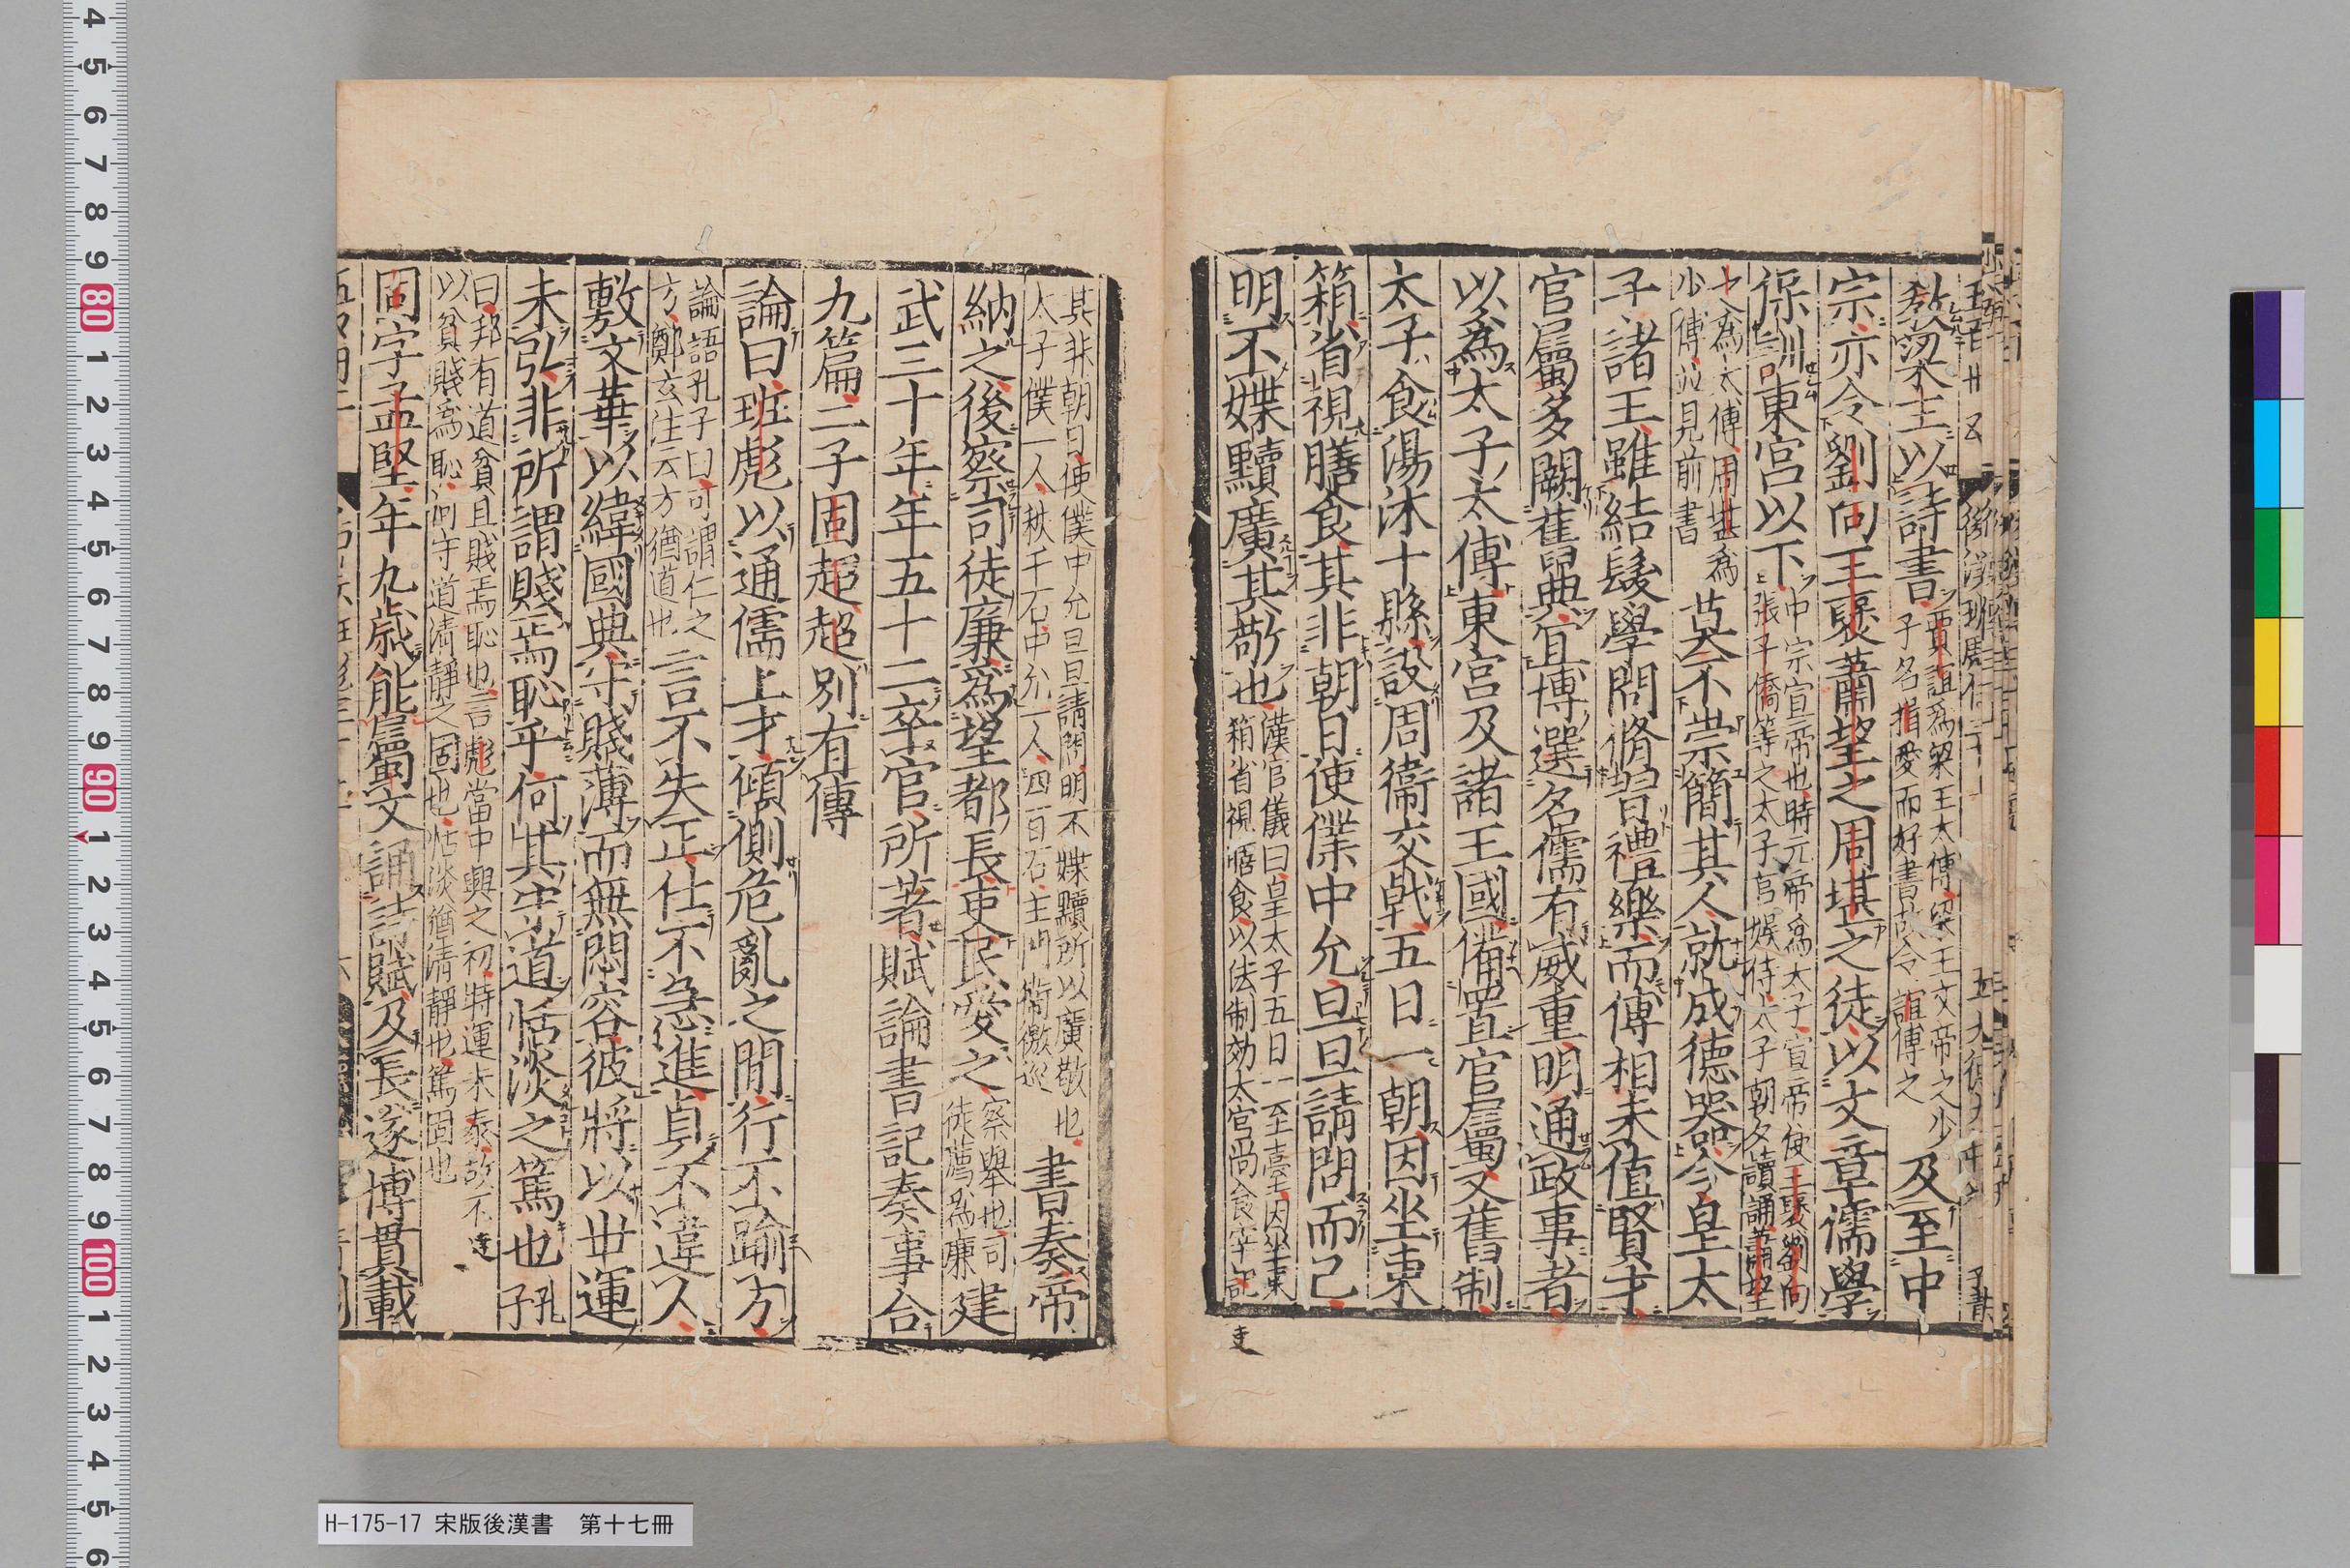 教梁王以詩書賈誼爲梁王太傅梁王文帝之少子名揖愛而好書故令誼傅之及至中
宗亦令劉向王襃蕭望之周堪之徒以文章儒學
保訓東宮以下中宗宣帝也時元帝爲太子宣帝使王襃劉向張子僑等之太子宮娛侍太子朝夕讀誦蕭望
之爲太傅周堪爲少傅並見前書莫不崇簡其人就成德器今皇太
子諸王雖結髮學問脩習禮樂而傅相未值賢才
官屬多闕舊典宜博選名儒有威重明通政事者
以爲太子太傅東宮及諸王國備置官屬又舊制
太子食湯沐十縣設周衞交戟五日一朝因坐東
箱省視膳食其非朝日使僕中允旦旦請問而已
明不媟黷廣其敬也漢官儀曰皇太子五日一至臺因坐東箱省視膳食以法制勑太官尚食宰吏
其非朝日使僕中允旦旦請問明不媟黷所以廣敬也太子僕一人秩千石中允一人四百石主門衞徼巡書奏帝
納之後察司徒廉爲望都長吏民愛之察舉也司徒薦爲廉建
武三十年年五十二卒官所著賦論書記奏事合
九篇二子固超超別有傳
論曰班彪以通儒上才傾側危亂之間行不踰方
論語孔子曰可謂仁之方鄭玄注云方猶道也言不失正仕不急進貞不違人
敷文華以緯國典守賤薄而無悶容彼將以世運
未弘非所謂賤焉恥乎何其守道恬淡之篤也孔子
曰邦有道貧且賤焉恥也言彪當中興之初時運未泰故不以貧賤爲恥何守道清靜之固也恬淡猶清靜也篤固也
固字孟堅年九歲能屬文誦詩賦及長遂博貫載
H-175-17 宋版後漢書 第十七冊